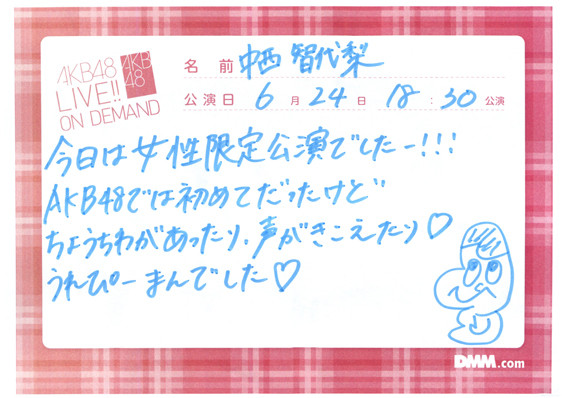 AKB48
LIVE!!
ON DEMAND
AKB
48
名前 中西 智代梨
公演日 6月24日 18:30公演
今日は女性限定公演でしたー!!!
AKB48では初めてだったけど
ちょうちわがあったり、声がきこえたり♡
うれぴーまんでした♡
DMM.com